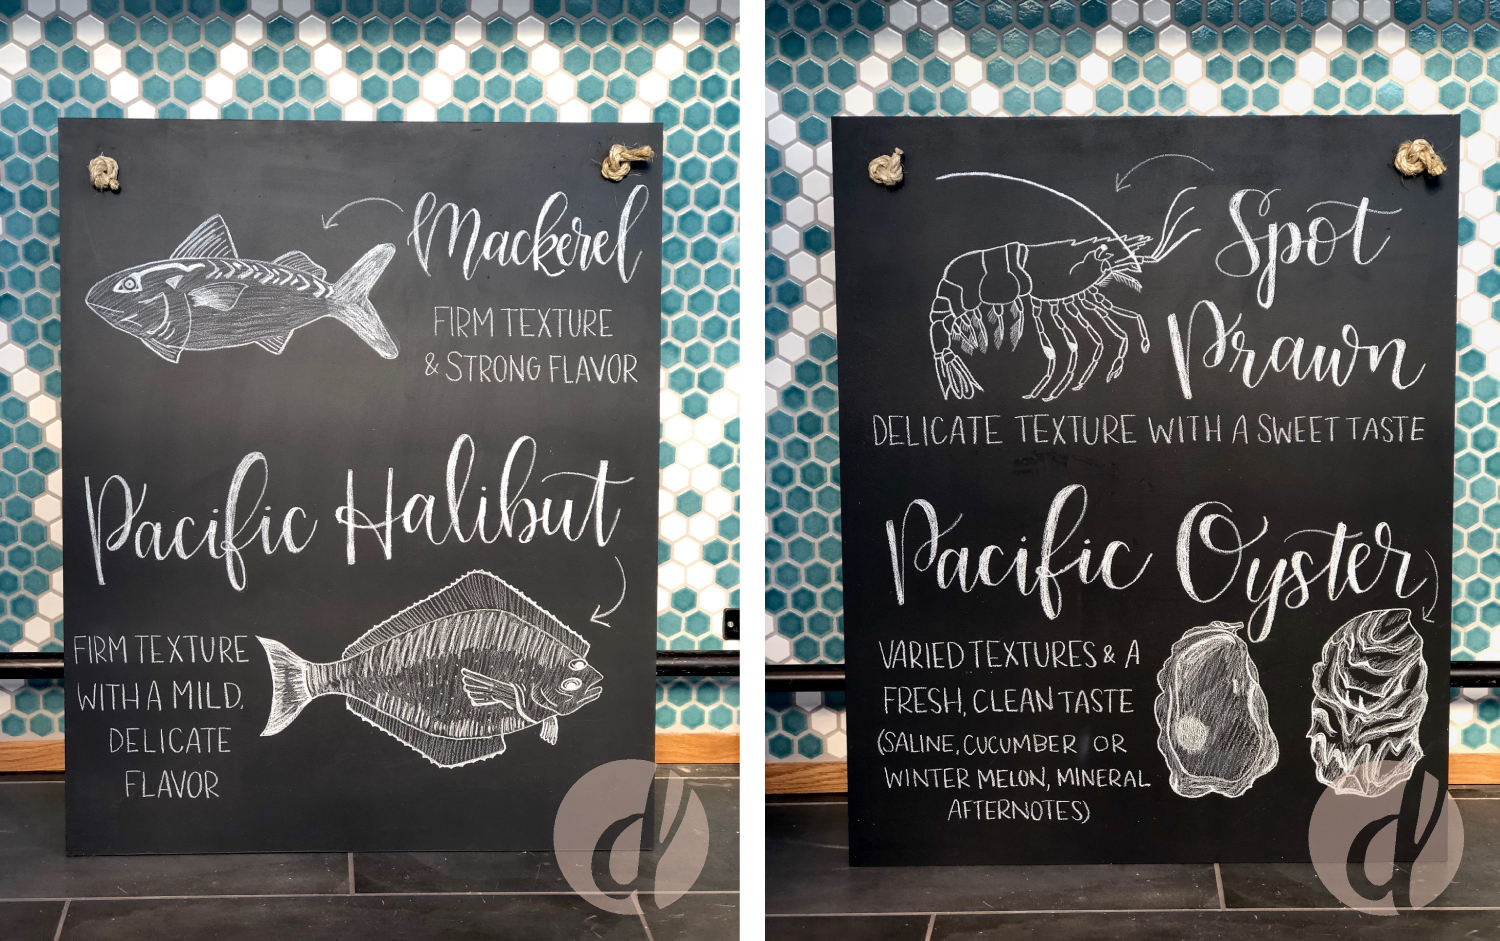 Mackerel
FIRM TEXTURE
& STRONG FLAVOR
Pacific Halibut
FIRM TEXTURE
WITH A MILD,
DELICATE
FLAVOR
d
Spot
Prawn
DELICATE TEXTURE WITH A SWEET TASTE
Pacific Oyster
VARIED TEXTURES & A
FRESH, CLEAN TASTE
(SALINE, CUCUMBER OR
WINTER MELON, MINERAL
AFTERNOTES)
d